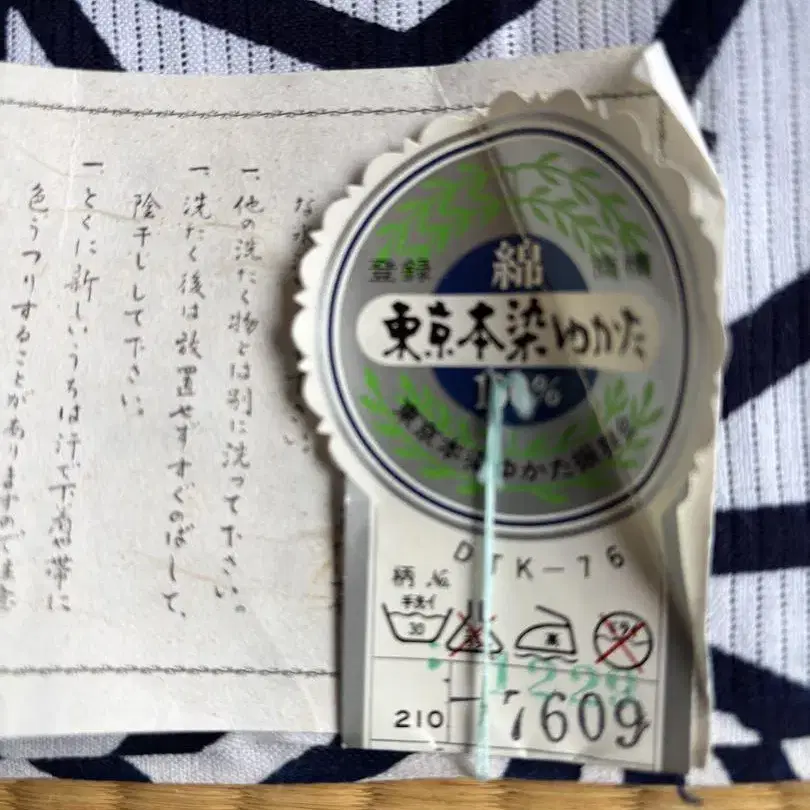 一、他の洗たく物とは別に洗って下さい。
一、洗たく後は放置せずすぐのばして、
陰干しして下さい。
一、とくに新しいうちは汗で下着や帯に
色うつりすることがありますので
綿
登録
東京本染ゆかた
100%
東京本染ゆかた
DTK-16
柄 No.
手洗イ
30
210
7609
1229